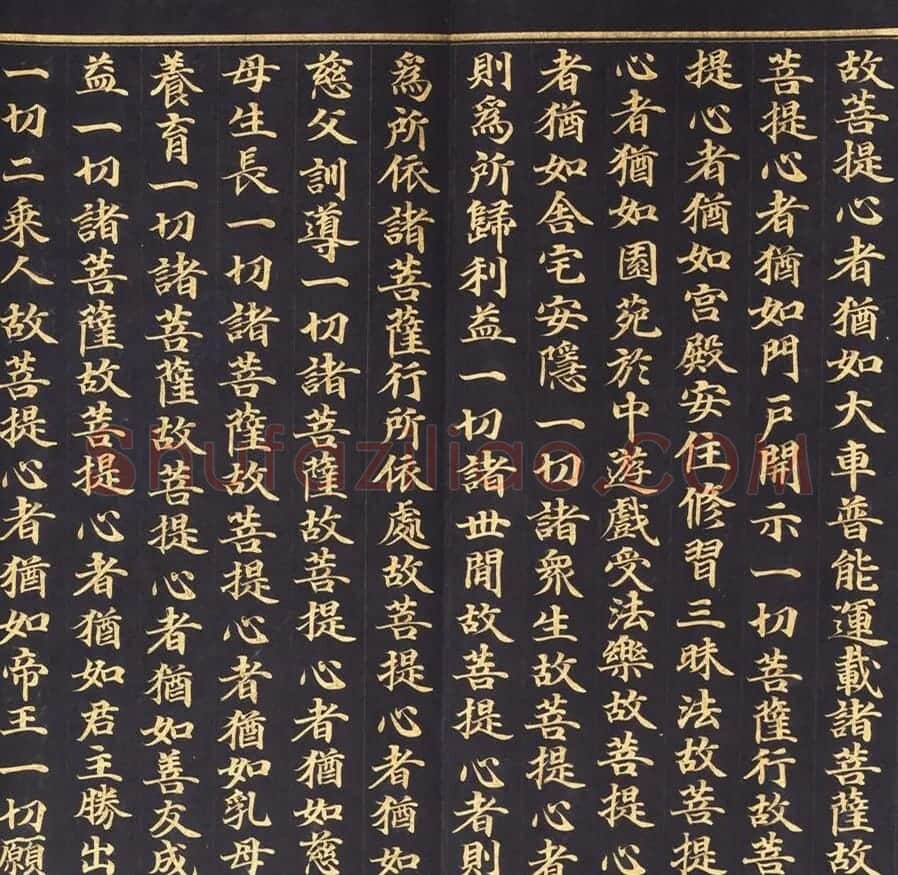 故菩提心者猶如大車普能運載諸菩薩故
菩提心者猶如門戶開示一切菩薩行故菩
提心者猶如宮殿安住修習三昧法故菩提
心者猶如園苑於中遊戲受法樂故菩提心
者猶如舍宅安隱一切諸眾生故菩提心者
則爲所歸利益一切諸世間故菩提心者則
爲所依諸菩薩行所依處故菩提心者猶如
慈父訓導一切諸菩薩故菩提心者猶如慈
母生長一切諸菩薩故菩提心者猶如乳母
養育一切諸菩薩故菩提心者猶如善友成
益一切諸菩薩故菩提心者猶如君主勝出
一切二乘人故菩提心者猶如帝王一切願
Shufaziliao.COM